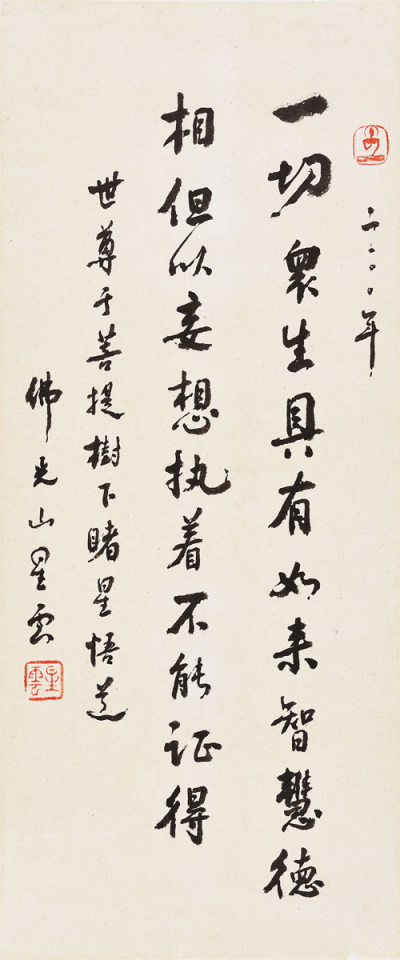 二〇〇〇年
一切眾生具有如来智慧德
相但以妄想执着不能证得
世尊于菩提樹下睹星悟道
佛光山星雲
星雲